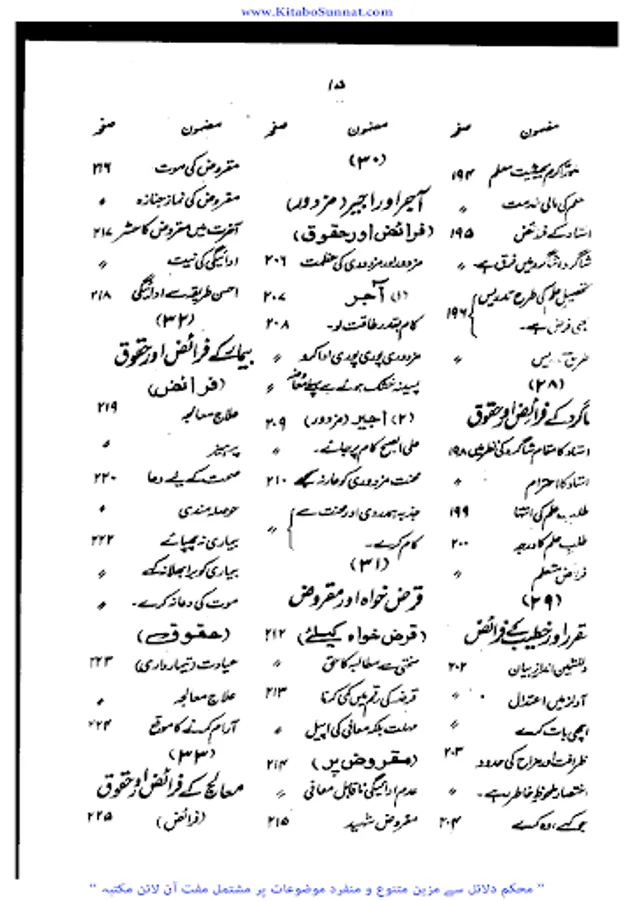 www.KitaboSunnat.com
۱۵
مضمون صفحہ
معلم ۱۹۴
معلم کی مالی خدمت 〃
استاد کے فرائض ۱۹۵
شاگرد شاگرد میں فرق ہے 〃
تحصیل علم کی طرح تدریس
بھی فرض ہے۔ ۱۹۶
طریق تدریس 〃
(۲۸)
شاگرد کے فرائض اور حقوق
استاد کا مقام شاگرد کی نظر میں ۱۹۸
استاد کا احترام 〃
طلب علم کی انتہا ۱۹۹
طالب علم کا درجہ ۲۰۰
فرائض متعلم 〃
(۲۹)
مقرر اور خطیب کے فرائض
دلنشین انداز بیان ۲۰۲
آواز میں اعتدال 〃
اچھی بات کرے 〃
ظرافت اور مزاح کی حدود ۲۰۳
اختصار ملحوظ خاطر رہے۔ 〃
جو کہے وہ کرے ۲۰۴
مضمون صفحہ
(۳۰)
آجر اور اجیر (مزدور)
(فرائض اور حقوق)
مزدور اور مزدوری کی عظمت ۲۰۶
(۱) آجر ۲۰۷
کام بقدر طاقت لو۔ ۲۰۸
مزدوری پوری پوری ادا کرو 〃
پسینہ خشک ہونے سے پہلے معاوضہ 〃
(۲) اجیر (مزدور) ۲۰۹
علی الصبح کام پر جائے۔ 〃
محنت مزدوری کو عار نہ سمجھے ۲۱۰
جذبہ ہمدردی اور محنت سے
کام کرے۔ 〃
(۳۱)
قرض خواہ اور مقروض
(قرض خواہ کیلئے) ۲۱۲
سختی سے مطالبہ کا حق 〃
قرضہ کی رقم میں کمی کرنا ۲۱۳
مہلت بلکہ معافی کی اپیل 〃
(مقروض پر) ۲۱۴
عدم ادائیگی ناقابل معافی 〃
مقروض شہید ۲۱۵
مضمون صفحہ
مقروض کی موت ۲۱۶
مقروض کی نماز جنازہ 〃
آخرت میں مقروض کا حشر ۲۱۷
ادائیگی کی نیت 〃
احسن طریقہ سے ادائیگی ۲۱۸
(۳۲)
بیمار کے فرائض اور حقوق
(فرائض)
علاج معالجہ ۲۱۹
پرہیز 〃
صحت کے لیے دعا ۲۲۰
حوصلہ مندی 〃
بیماری نہ چھپائے ۲۲۲
بیماری کو برا بھلا نہ کہے 〃
موت کی دعا نہ کرے۔ 〃
(حقوق)
عیادت (تیمارداری) ۲۲۳
علاج معالجہ 〃
آرام کرنے کا موقع ۲۲۴
(۳۳)
معالج کے فرائض اور حقوق
(فرائض) ۲۲۵
" محکم دلائل سے مزین متنوع و منفرد موضوعات پر مشتمل مفت آن لائن مکتبہ "